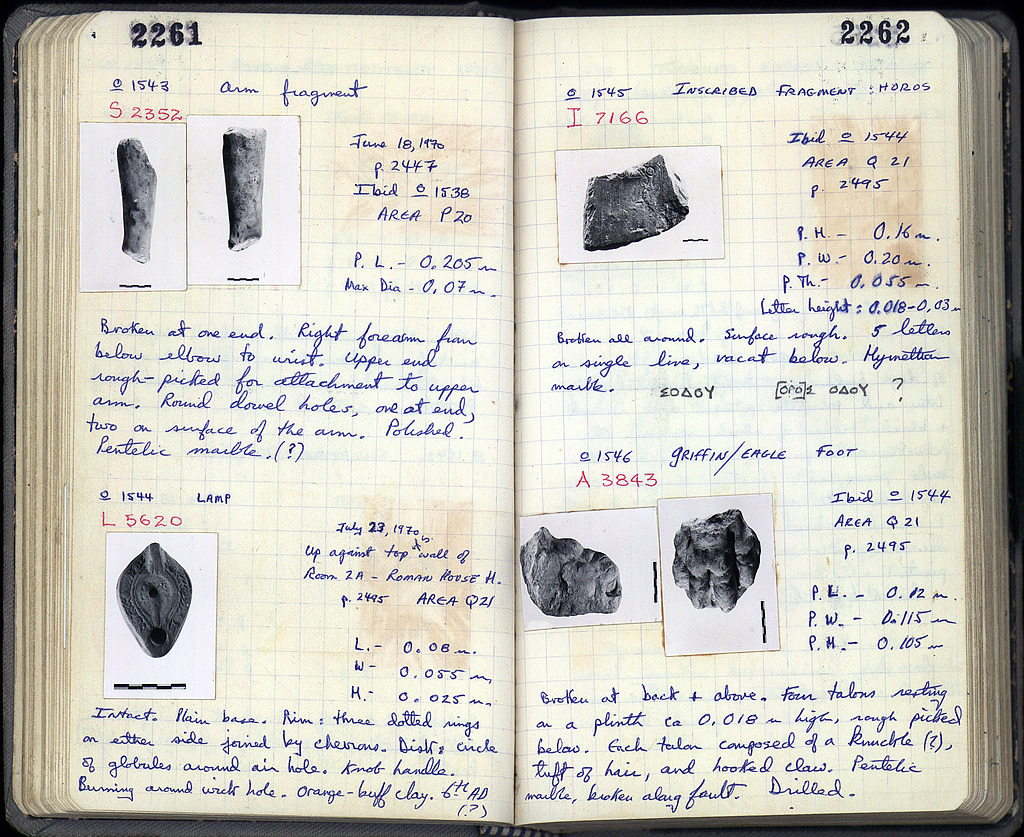 2261
o 1543 arm fragment
S 2352
June 18, 1970
p. 2447
Ibid o 1538
AREA P 20
P. L. - 0.205 m
Max Dia - 0.07 m.
Broken at one end. Right forearm from
below elbow to wrist. Upper end
rough-picked for attachment to upper
arm. Round dowel holes, one at end,
two on surface of the arm. Polished.
Pentelic marble. (?)
o 1544 LAMP
L 5620
July 23, 1970
Up against top wall of
Room 2A - ROMAN HOUSE H.
p. 2495 AREA Q21
L. - 0.08 m.
W - 0.055 m,
H. - 0.025 m.
Intact. Plain base. Rim: three dotted rings
on either side joined by chevrons. Disk: circle
of globules around air hole. Knob handle.
Burning around wick hole. Orange-buff clay. 6th AD
(?)
2262
o 1545 INSCRIBED FRAGMENT: HOROS
I 7166
Ibid o 1544
AREA Q 21
p. 2495
P. H. - 0.16 m.
P. W. - 0.20 m.
P. Th. - 0.055 m.
Letter height: 0.018-0.03 m
Broken all around. Surface rough. 5 letters
on single line, vacat below. Hymettian
marble. ΣΟΔΟΥ [ὅρο]ς ΟΔΟΥ ?
o 1546 GRIFFIN/EAGLE FOOT
A 3843
Ibid o 1544
AREA Q 21
p. 2495
P. L. - 0.12 m.
P. W. - 0.115 m
P. H. - 0.105 m
Broken at back + above. Four talons resting
on a plinth ca 0.018 m high, rough picked
below. Each talon composed of a knuckle (?),
tuft of hair, and hooked claw. Pentelic
marble, broken along fault. Drilled.